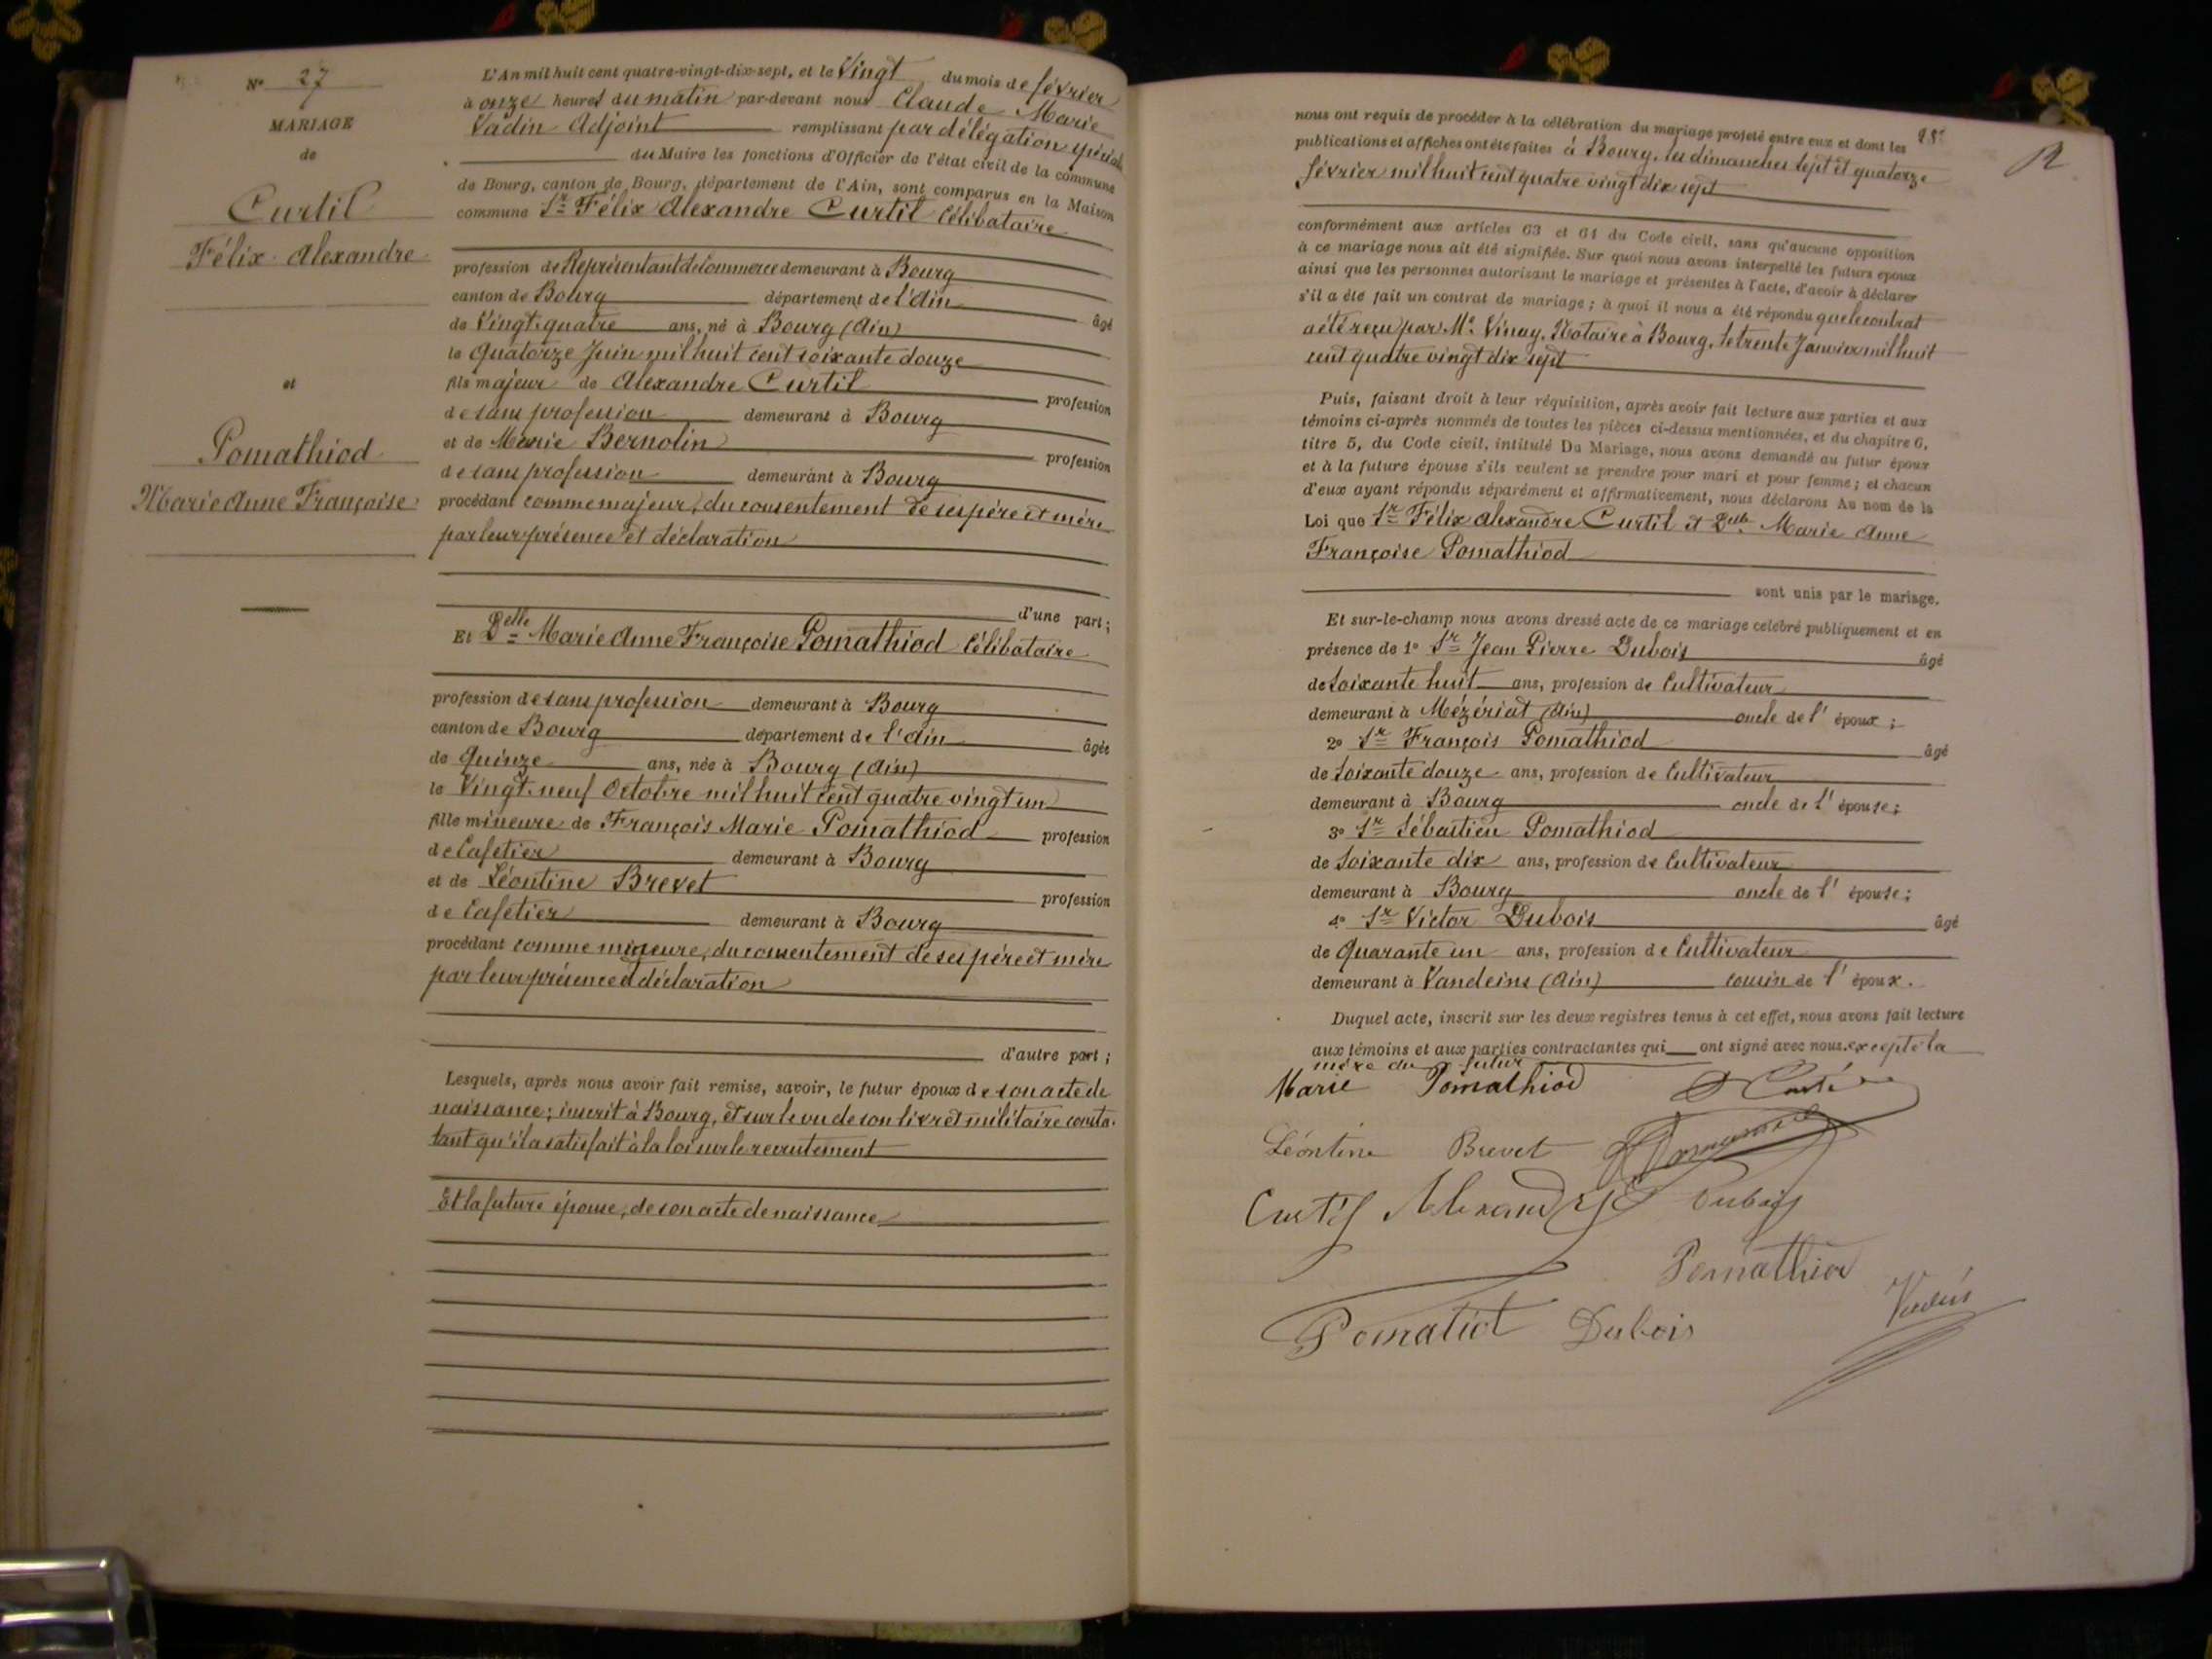 N° 27
MARIAGE
de
Curtil
Félix Alexandre
et
Pomathiod
Marie Anne Françoise
L'An mil huit cent quatre-vingt-dix-sept, et le Vingt du mois de février
à onze heures du matin par-devant nous Claude Marie
Vadin Adjoint remplissant par délégation spéciale
du Maire les fonctions d'Officier de l'état civil de la commune
de Bourg, canton de Bourg, département de l'Ain, sont comparus en la Maison
commune Sr Félix Alexandre Curtil Célibataire
profession de Représentant de Commerce demeurant à Bourg
canton de Bourg département de l'Ain âgé
de Vingt-quatre ans, né à Bourg (Ain)
le Quatorze Juin mil huit cent soixante douze
fils majeur de Alexandre Curtil profession
de sans profession demeurant à Bourg
et de Marie Bernolin profession
de sans profession demeurant à Bourg
procédant comme majeur, du consentement de ses père et mère
par leur présence et déclaration
d'une part ;
Et Delle Marie Anne Françoise Pomathiod Célibataire
profession de sans profession demeurant à Bourg
canton de Bourg département de l'Ain âgée
de Quinze ans, née à Bourg (Ain)
le Vingt-neuf Octobre mil huit cent quatre vingt un
fille mineure de François Marie Pomathiod profession
de Cafetier demeurant à Bourg
et de Léontine Brevet profession
de Cafetier demeurant à Bourg
procédant comme mineure, du consentement de ses père et mère
par leur présence et déclaration
d'autre part ;
Lesquels, après nous avoir fait remise, savoir, le futur époux de son acte de
naissance ; inscrit à Bourg, et sur le vu de son livret militaire consta-
tant qu'il a satisfait à la loi sur le recrutement
Et la future épouse, de son acte de naissance
28
nous ont requis de procéder à la célébration du mariage projeté entre eux et dont les
publications et affiches ont été faites à Bourg, les dimanches sept et quatorze
février mil huit cent quatre vingt dix sept
conformément aux articles 63 et 64 du Code civil, sans qu'aucune opposition
à ce mariage nous ait été signifiée. Sur quoi nous avons interpellé les futurs époux
ainsi que les personnes autorisant le mariage et présentes à l'acte, d'avoir à déclarer
s'il a été fait un contrat de mariage ; à quoi il nous a été répondu que le contrat
a été reçu par Me Vinay, Notaire à Bourg, le trente Janvier mil huit
cent quatre vingt dix sept
Puis, faisant droit à leur réquisition, après avoir fait lecture aux parties et aux
témoins ci-après nommés de toutes les pièces ci-dessus mentionnées, et du chapitre 6,
titre 5, du Code civil, intitulé Du Mariage, nous avons demandé au futur époux
et à la future épouse s'ils veulent se prendre pour mari et pour femme ; et chacun
d'eux ayant répondu séparément et affirmativement, nous déclarons Au nom de la
Loi que Sr Félix Alexandre Curtil et Delle Marie Anne
Françoise Pomathiod
sont unis par le mariage.
Et sur-le-champ nous avons dressé acte de ce mariage célébré publiquement et en
présence de 1° Sr Jean Pierre Dubois âgé
de Soixante huit ans, profession de Cultivateur
demeurant à Mézériat (Ain) oncle de l'époux ;
2° Sr François Pomathiod âgé
de Soixante douze ans, profession de Cultivateur
demeurant à Bourg oncle de l'épouse ;
3° Sr Sébastien Pomathiod
de Soixante dix ans, profession de Cultivateur
demeurant à Bourg oncle de l'épouse ;
4° Sr Victor Dubois âgé
de Quarante un ans, profession de Cultivateur
demeurant à Vandeins (Ain) cousin de l'époux.
Duquel acte, inscrit sur les deux registres tenus à cet effet, nous avons fait lecture
aux témoins et aux parties contractantes qui ont signé avec nous. excepté la
mère du futur
Marie Pomathiod
Léontine Brevet
Curtil Alexandre Dubois
Pomathiod
Pomatiot Dubois Vadin